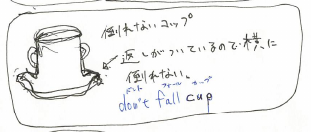 倒れないコップ
返しがついているので横に
倒れない。
ドント フォール カップ
don't fall cup